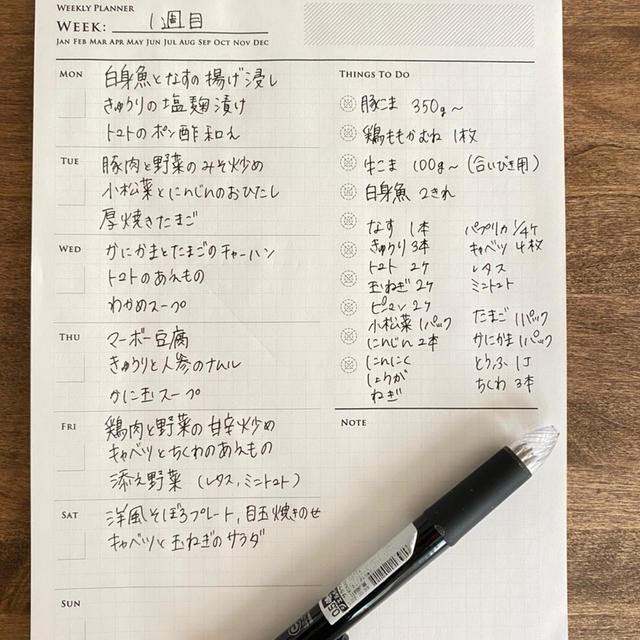 WEEKLY PLANNER
WEEK: 1週目
JAN FEB MAR APR MAY JUN JUL AUG SEP OCT NOV DEC
MON
白身魚となすの揚げ浸し
きゅうりの塩麹漬け
トマトのポン酢和え
TUE
豚肉と野菜のみそ炒め
小松菜とにんじんのおひたし
厚焼きたまご
WED
かにかまとたまごのチャーハン
トマトのあえもの
わかめスープ
THU
マーボー豆腐
きゅうりと人参のナムル
かに玉スープ
FRI
鶏肉と野菜の甘辛炒め
キャベツとちくわのあえもの
添え野菜(レタス,ミニトマト)
SAT
洋風そぼろプレート,目玉焼きのせ
キャベツと玉ねぎのサラダ
SUN
THINGS TO DO
豚こま 350g〜
鶏ももかむね 1枚
牛こま 100g〜(合いびき用)
白身魚 2きれ
なす 1本
きゅうり 3本
トマト 2ケ
玉ねぎ 2ケ
ピーマン 2ケ
小松菜 1パック
にんじん 2本
にんにく
しょうが
ねぎ
パプリカ 1/4ケ
キャベツ 4枚
レタス
ミニトマト
たまご 1パック
かにかま 1パック
とうふ 1丁
ちくわ 3本
NOTE